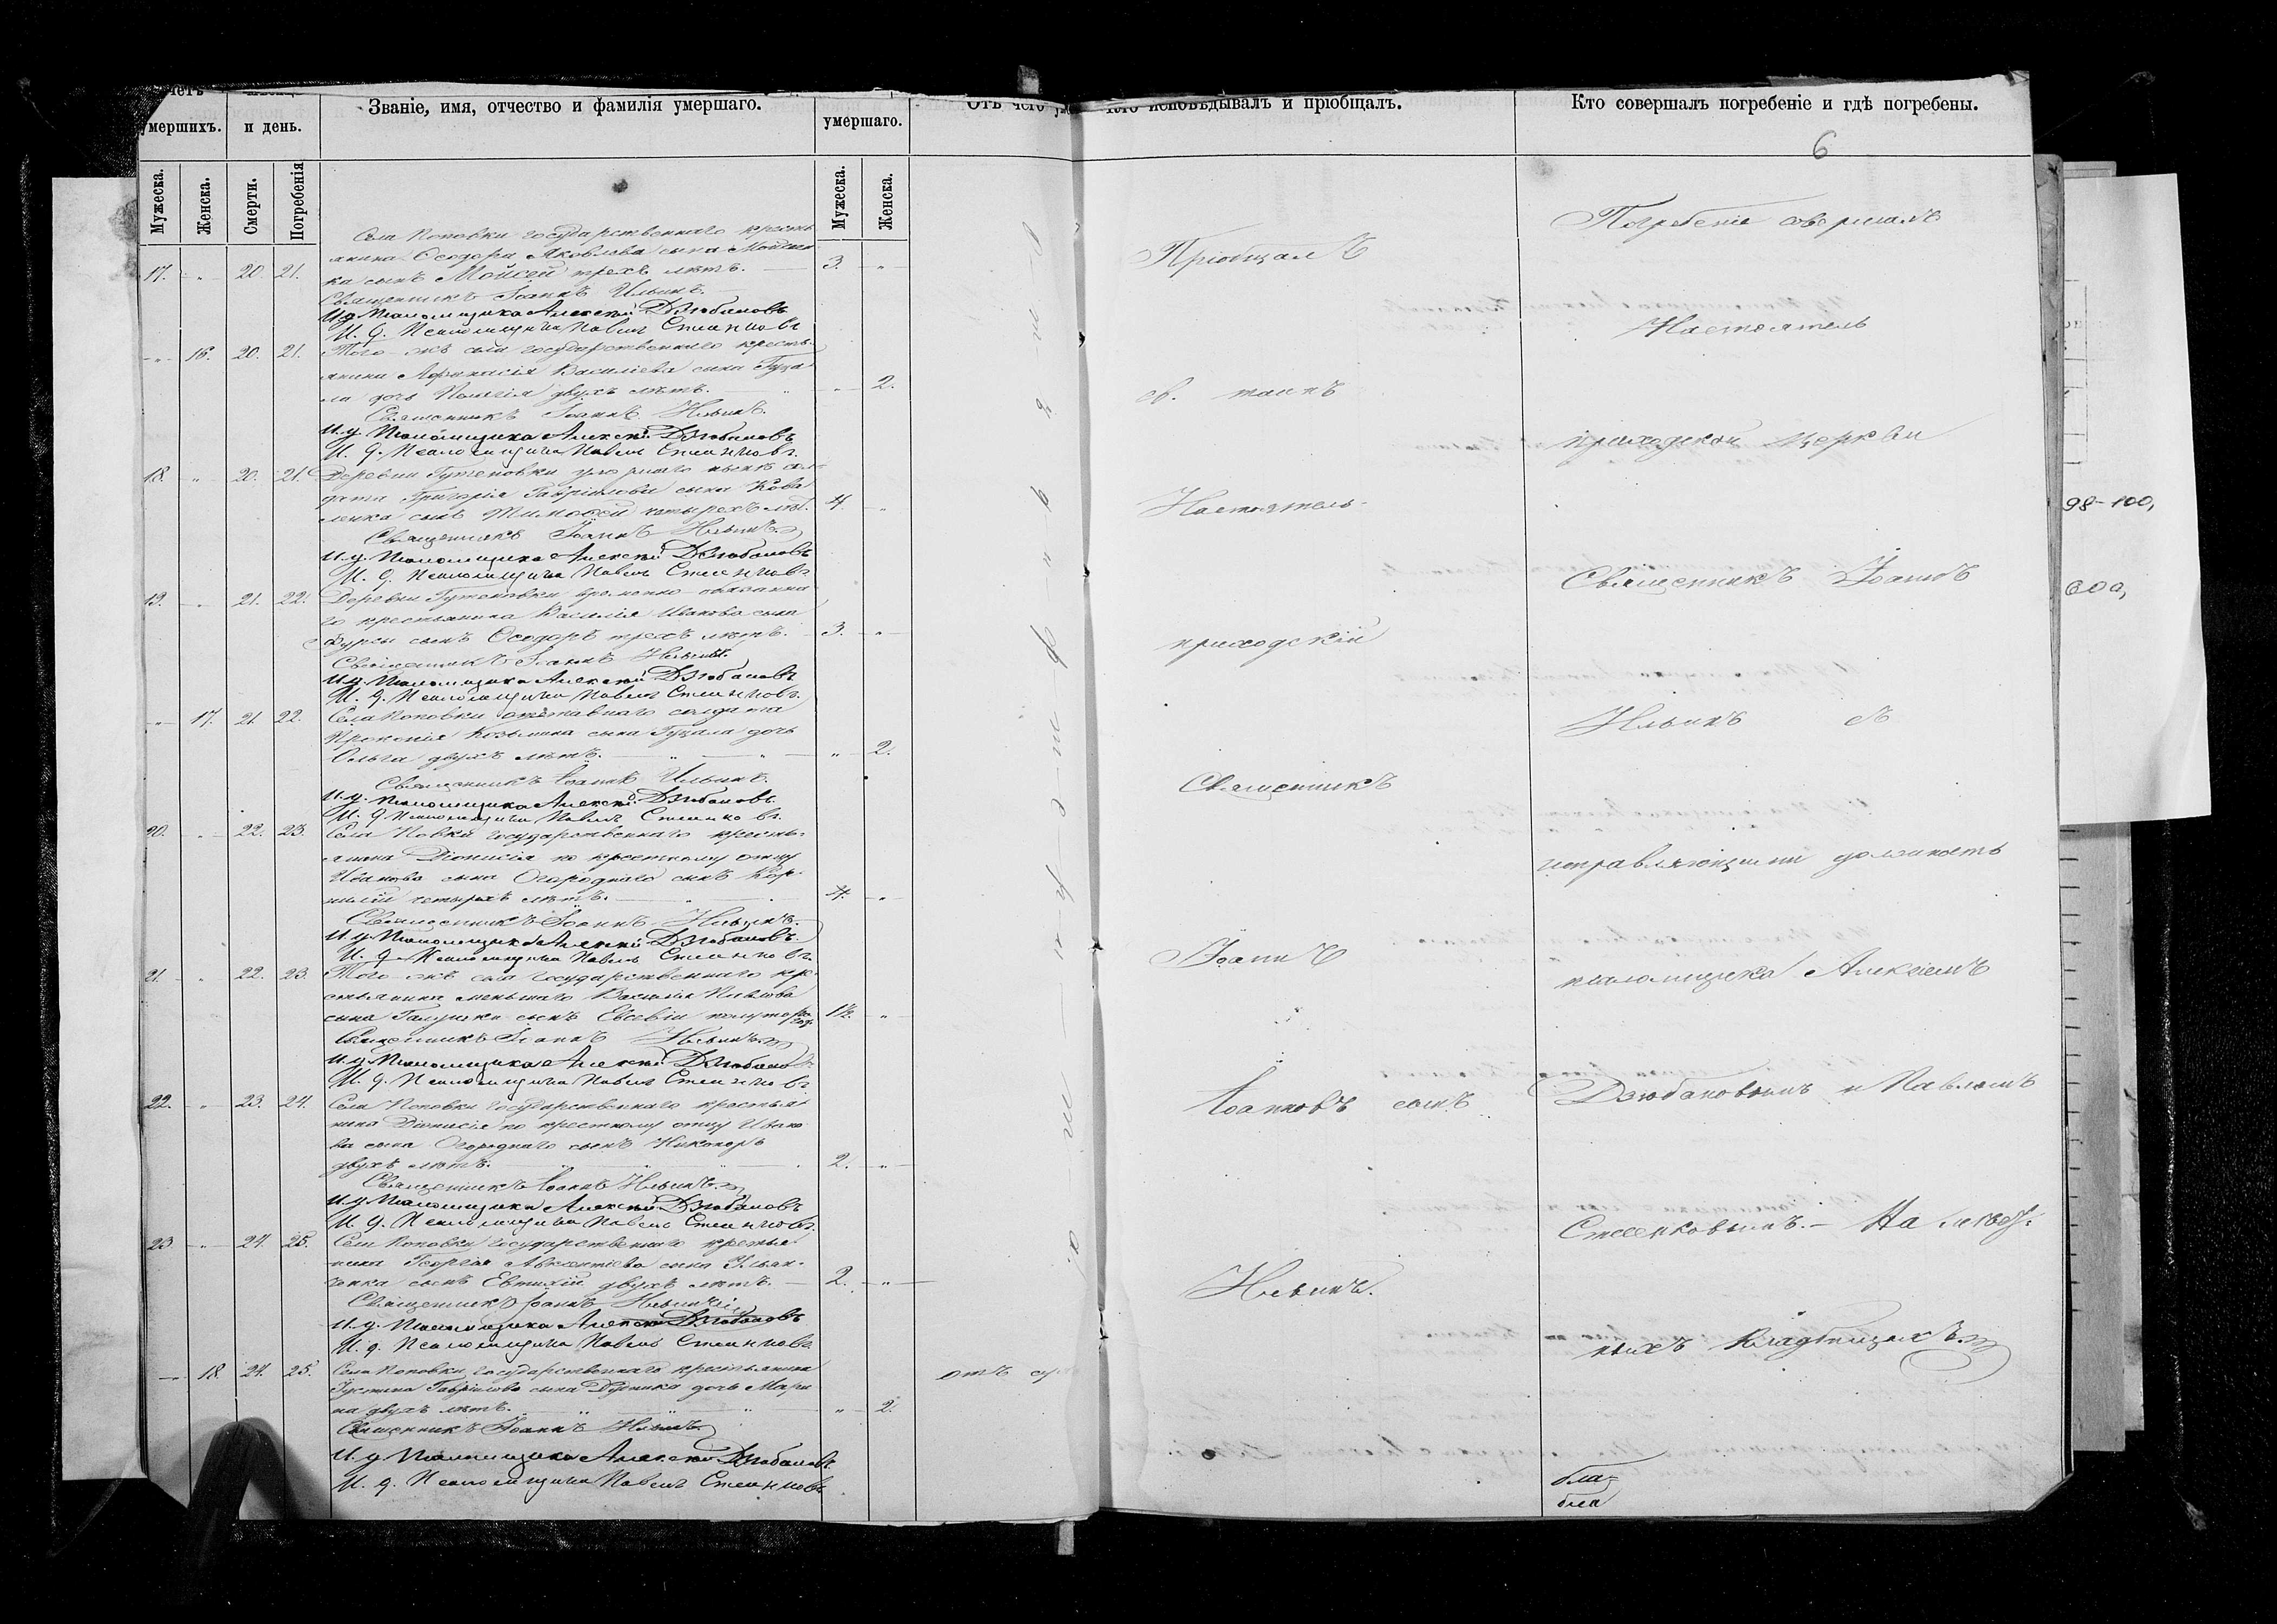 Званіе, имя, отчество и фамилія умершаго.
умершихъ.
и день.
умершаго.
Отъ чего
исповѣдывалъ и пріобщалъ.
Кто совершалъ погребеніе и гдѣ погребены.
6
Мужеска.
Женска.
Смерти.
Погребенія
Мужеска.
Женска.
Села Поповки государственнаго кресть
янина Ѳеодора Яковлева сына
17. 20. 21. ка сынъ Моѵсей трехъ лѣтъ. 3.
Священникъ Іоаннъ Ильинъ.
И. д. Псаломщика Алексѣй Дзюбановъ
И. д. Псаломщика Павелъ Стеенковъ
16. 20. 21. Того же села государственнаго кресть
янина Аѳанасія Василіева сына Гуза
ла дочь Пелагія двухъ лѣтъ. 2.
Священникъ Іоаннъ Ильинъ.
И. д. Псаломщика Алексѣй Дзюбановъ
И. д. Псаломщика Павелъ Стеенковъ
18. 20. 21. Деревни
дата Григорія Гавріилова сына Кова
ленка сынъ Тимоѳей четырехъ лѣт. 4.
Священникъ Іоаннъ Ильинъ
И. д. Псаломщика Алексѣй Дзюбановъ
И. д. Псаломщика Павелъ Стеенковъ
19. 21. 22. Деревни временно-обязанна
го крестьянина Василія Иванова сына
Фурсы сынъ Ѳеодоръ трехъ лѣтъ. 3.
Священникъ Іоаннъ Ильинъ.
И. д. Псаломщика Алексѣй Дзюбановъ
И. д. Псаломщика Павелъ Стеенковъ
17. 21. 22. Села Поповки отставнаго солдата
Прокопія Козьмина сына Гузала дочь
Ольга двухъ лѣтъ. 2.
Священникъ Іоаннъ Ильинъ.
И. д. Псаломщика Алексѣй Дзюбановъ
И. д. Псаломщика Павелъ Стеенковъ
20. 22. 23. Села Повки государственнаго кресть-
янина Діонисія по крестному отцу
Иванова сына Огороднаго сынъ Кор-
нилій четырехъ лѣтъ. 4.
Священникъ Іоаннъ Ильинъ.
И. д. Псаломщика Алексѣй Дзюбановъ
И. д. Псаломщика Павелъ Стеенковъ
21. 22. 23. Того же села государственнаго кре-
стьянина меньшаго Василія Павлова
сына Галушки сынъ Евсевій полутора год. 1½.
Священникъ Іоаннъ Ильинъ
И. д. Псаломщика Алексѣй Дзюбановъ
И. д. Псаломщика Павелъ Стеенковъ
22. 23. 24. Села Поповки государственнаго крестья
нина Діонисія по крестному отцу Ивано
ва сына Огороднаго сынъ Никаноръ
двухъ лѣтъ. 2.
Священникъ Іоаннъ Ильинъ
И. д. Псаломщика Алексѣй Дзюбановъ
И. д. Псаломщика Павелъ Стеенковъ
23 24. 25. Села Поповки государственнаго крестья
нина Георгія Авксентіева сына Ульян-
ченка сынъ Евтихій двухъ лѣтъ. 2.
Священникъ Іоаннъ Ильинъ
И. д. Псаломщика Алексѣй Дзюбановъ
И. д. Псаломщика Павелъ Стеенковъ
18. 24. 25. Села Поповки государственнаго крестьянина
Іустина Гавріилова сына дочь Мари
на двухъ лѣтъ. 2.
Священникъ Іоаннъ Ильинъ
И. д. Псаломщика Алексѣй Дзюбановъ
И. д. Псаломщика Павелъ Стеенковъ
отъ
Пріобщалъ
св. таинъ
Настоятель
приходскій
Священникъ
Іоаннъ
Іоанновъ сынъ
Ильинъ.
Погребеніе совершалъ
Настоятель
приходской церкви
Священникъ Іоаннъ
Ильинъ съ
исправляющими должность
псаломщика Алексіемъ
Дзюбановымъ и Павломъ
Стеенковымъ. – На
ныхъ кладбищахъ
98-100,
600,